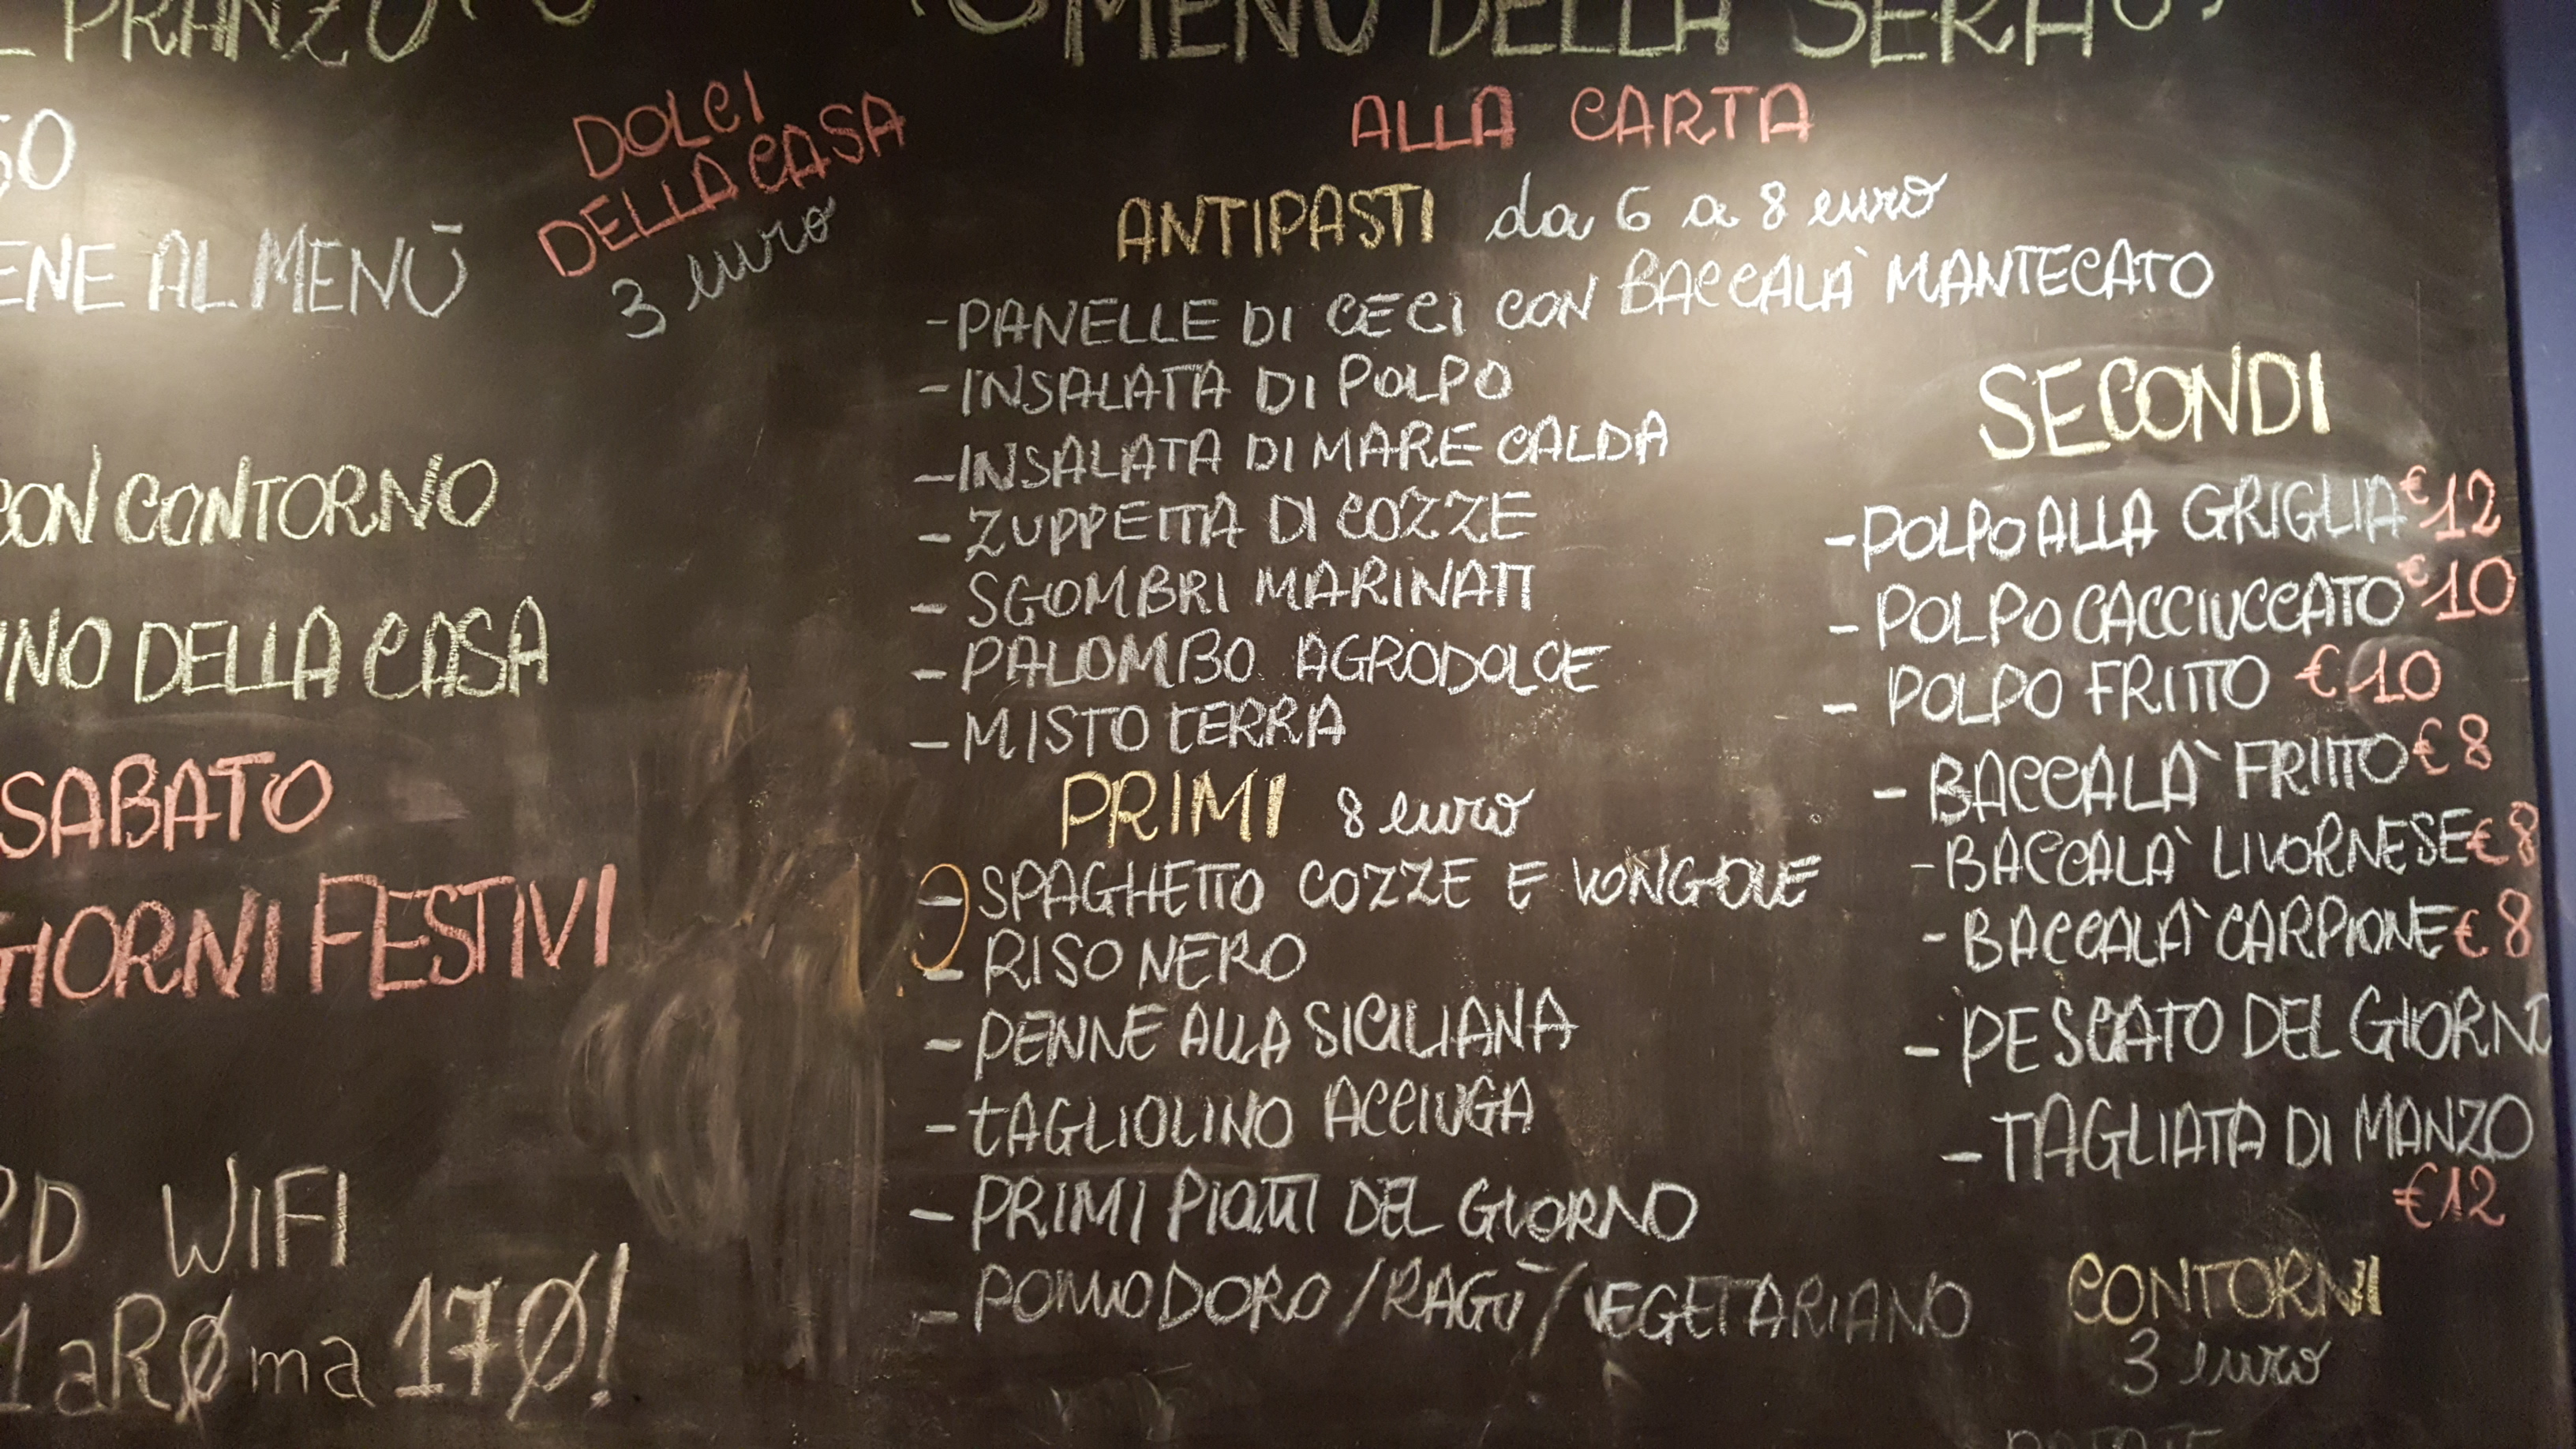 PRANZO
50
ENE AL MENÙ
DOLCI
DELLA CASA
3 euro
CON CONTORNO
INO DELLA CASA
SABATO
GIORNI FESTIVI
WIFI
1aRØma 17Ø!
MENÙ DELLA SERA
ALLA CARTA
ANTIPASTI da 6 a 8 euro
- PANELLE DI CECI CON BACCALA' MANTECATO
- INSALATA DI POLPO
- INSALATA DI MARE CALDA
- ZUPPETTA DI COZZE
- SGOMBRI MARINATI
- PALOMBO AGRODOLCE
- MISTO TERRA
PRIMI 8 euro
- SPAGHETTO COZZE E VONGOLE
- RISO NERO
- PENNE ALLA SICILIANA
- TAGLIOLINO ACCIUGA
- PRIMI PIATTI DEL GIORNO
- POMODORO/RAGÙ/VEGETARIANO
SECONDI
- POLPO ALLA GRIGLIA €12
- POLPO CACCIUCCATO €10
- POLPO FRITTO €10
- BACCALA' FRITTO €8
- BACCALA' LIVORNESE €8
- BACCALA' CARPIONE €8
- PESCATO DEL GIORNO
- TAGLIATA DI MANZO
€12
CONTORNI
3 euro